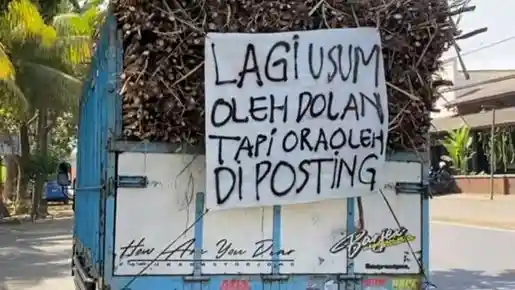 LAGI USUM
OLEH DOLAN
TAPI ORA OLEH
DI POSTING
How Are You Dear